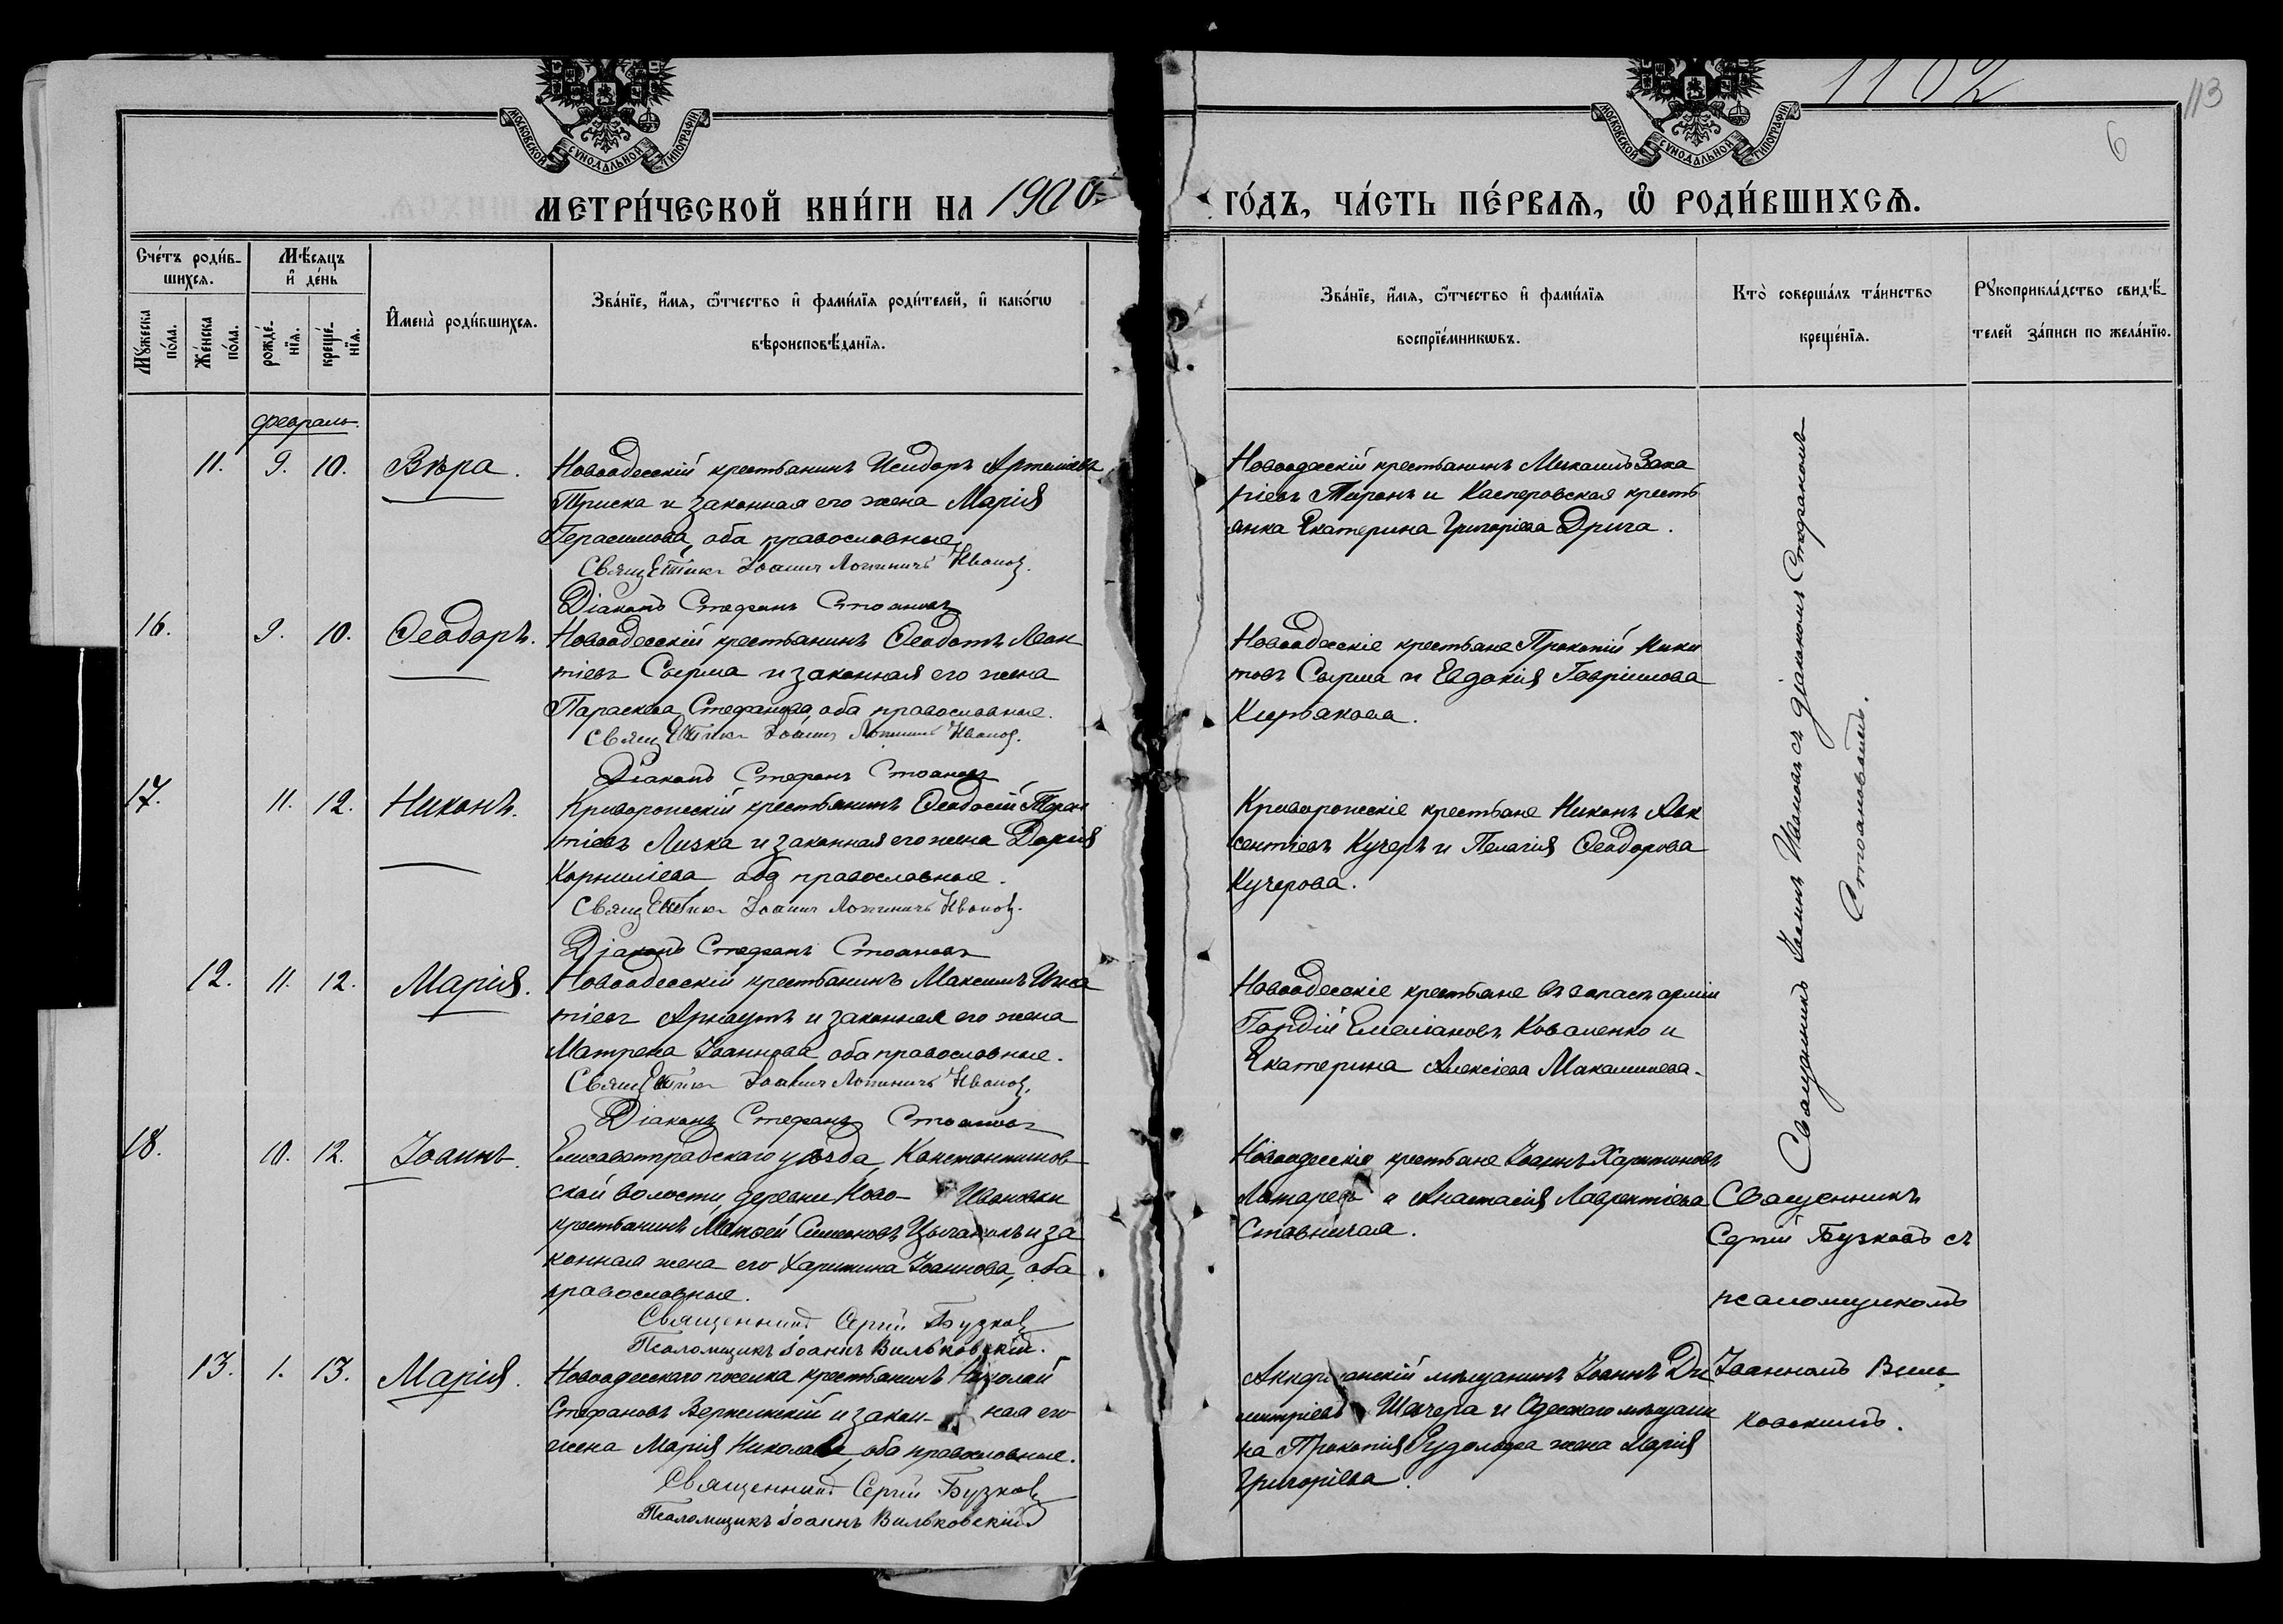 1102
113
6
МОСКОВСКОЙ СУНОДАЛЬНОЙ ТИПОГРАФІИ
МОСКОВСКОЙ СУНОДАЛЬНОЙ ТИПОГРАФІИ
МЕТРИ́ЧЕСКОЙ КНИ́ГИ НА 1900 ГО́ДЪ, ЧА́СТЬ ПЕ́РВАѦ, Ѡ РОДИ́ВШИХСѦ.
Сче́тъ роди́в-
шихсѧ.
Мѣ́сѧцъ
и҆ де́нь
Мꙋ́жеска
по́ла.
Же́нска
по́ла.
рожде́-
нїѧ.
креще́-
нїѧ.
И҆мена̀ роди́вшихсѧ.
Зва́нїе, и҆́мѧ, ѻ҆́тчество и҆ фами́лїѧ роди́телей, и҆ како́гѡ
вѣроисповѣ́данїѧ.
Зва́нїе, и҆́мѧ, ѻ҆́тчество и҆ фами́лїѧ
воспрїе́мникѡвъ.
Кто̀ соверша́лъ та́инство
креще́нїѧ.
Рꙋкоприкла́дство свидѣ́-
телей за́писи по жела́нїю.
Февраль.
11. 9. 10. Вѣра.
Новоодесскій крестьянинъ Исидоръ Артеміевъ
Приска и законная его жена Марія
Герасимова, оба православные
Священникъ Іоаннъ Логиничъ Ивановъ.
Діаконъ Стефанъ Стоановъ
Новоодесскій крестьянинъ Михаилъ Заха
ріевъ Тиранъ и Касперовская кресть
янка Екатерина Григоріева Дрига.
16. 9. 10. Ѳеодоръ.
Новоодесскій крестьянинъ Ѳеодотъ Леон
тіевъ Сырма и законная его жена
Параскева Стефанова, оба православные.
Священникъ Іоаннъ Логиничъ Ивановъ.
Діаконъ Стефанъ Стоановъ
Новоодесскіе крестьяне Прокопій Ники
товъ Сырма и Евдокія Гавріилова
Кирьякова.
17. 11. 12. Никонъ.
Криворожскій крестьянинъ Ѳеодосій Терен
тіевъ Лизка и законная его жена Дарія
Корниліева оба православные.
Священникъ Іоаннъ Логиничъ Ивановъ.
Діаконъ Стефанъ Стоановъ
Криворожскіе крестьяне Никонъ Авк
сентіевъ Кучеръ и Пелагія Ѳеодорова
Кучерова.
12. 11. 12. Марія.
Новоодесскій крестьянинъ Максимъ Игна
тіевъ Арнаутъ и законная его жена
Матрена Іоаннова оба православные.
Священникъ Іоаннъ Логиничъ Ивановъ.
Діаконъ Стефанъ Стоановъ
Новоодесскіе крестьяне въ запасѣ арміи
Гордій Емеліановъ Коваленко и
Екатерина Алексіева
Священникъ Іоаннъ Ивановъ съ діакономъ Стефаномъ
Стоановымъ.
18. 10. 12. Іоаннъ.
Елисаветградскаго уѣзда, Константинов
ской волости, деревни Ново- Ивановки
крестьянинъ Матѳей Симеоновъ Цыганокъ и за
конная жена его Харитина Іоаннова, оба
православные.
Священникъ Сергій Бузковъ
Псаломщикъ Іоаннъ Вильковскій.
Новоодесскіе крестьяне Іоаннъ Харитоновъ
и Анастасія Лаврентіева
Ставничая.
Священникъ
Сергій Бузковъ съ
псаломщикомъ
Іоанномъ Виль
ковскимъ.
13. 1. 13. Марія.
Новоодесскаго поселка крестьянинъ Николай
Стефановъ Вержинскій и закон- ная его
жена Марія Николаева, оба православные.
Священникъ Сергій Бузковъ
Псаломщикъ Іоаннъ Вильковскій
мѣщанинъ Іоаннъ Ди
митріевъ и Одесскаго мѣщани
на Прокопія Рудольфа жена Марія
Григоріева.